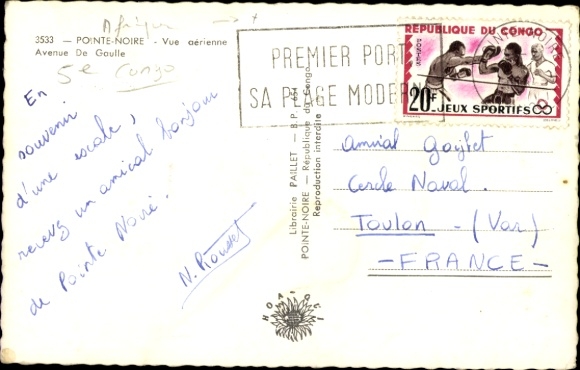 Afrique
3533 — POINTE-NOIRE - Vue aérienne
Avenue De Gaulle
5e Congo
En
souvenir
d'une escale,
recevez un amical bonjour
de Pointe Noire.
Librairie PAILLET — B.P.
POINTE-NOIRE — République du Congo
Reproduction interdite
PREMIER PORT
SA PLAGE MODE
REPUBLIQUE DU CONGO
20F
JEUX SPORTIFS
Amiral
Cercle Naval.
Toulon - (Var)
- FRANCE -